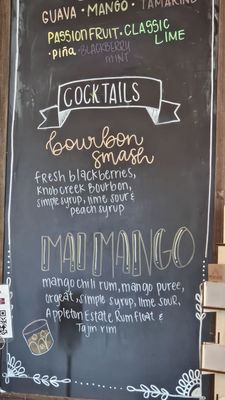 GUAVA · MANGO · TAMARIND
PASSIONFRUIT · CLASSIC LIME
· Piña · BLACKBERRY MINT
COCKTAILS
bourbon
smash
fresh blackberries,
Knob creek Bourbon,
simple syrup, lime sour &
peach syrup
MAI MANGO
mango chili rum, mango puree,
orgeat, simple syrup, lime sour,
Appleton Estate Rum float &
Tajin rim